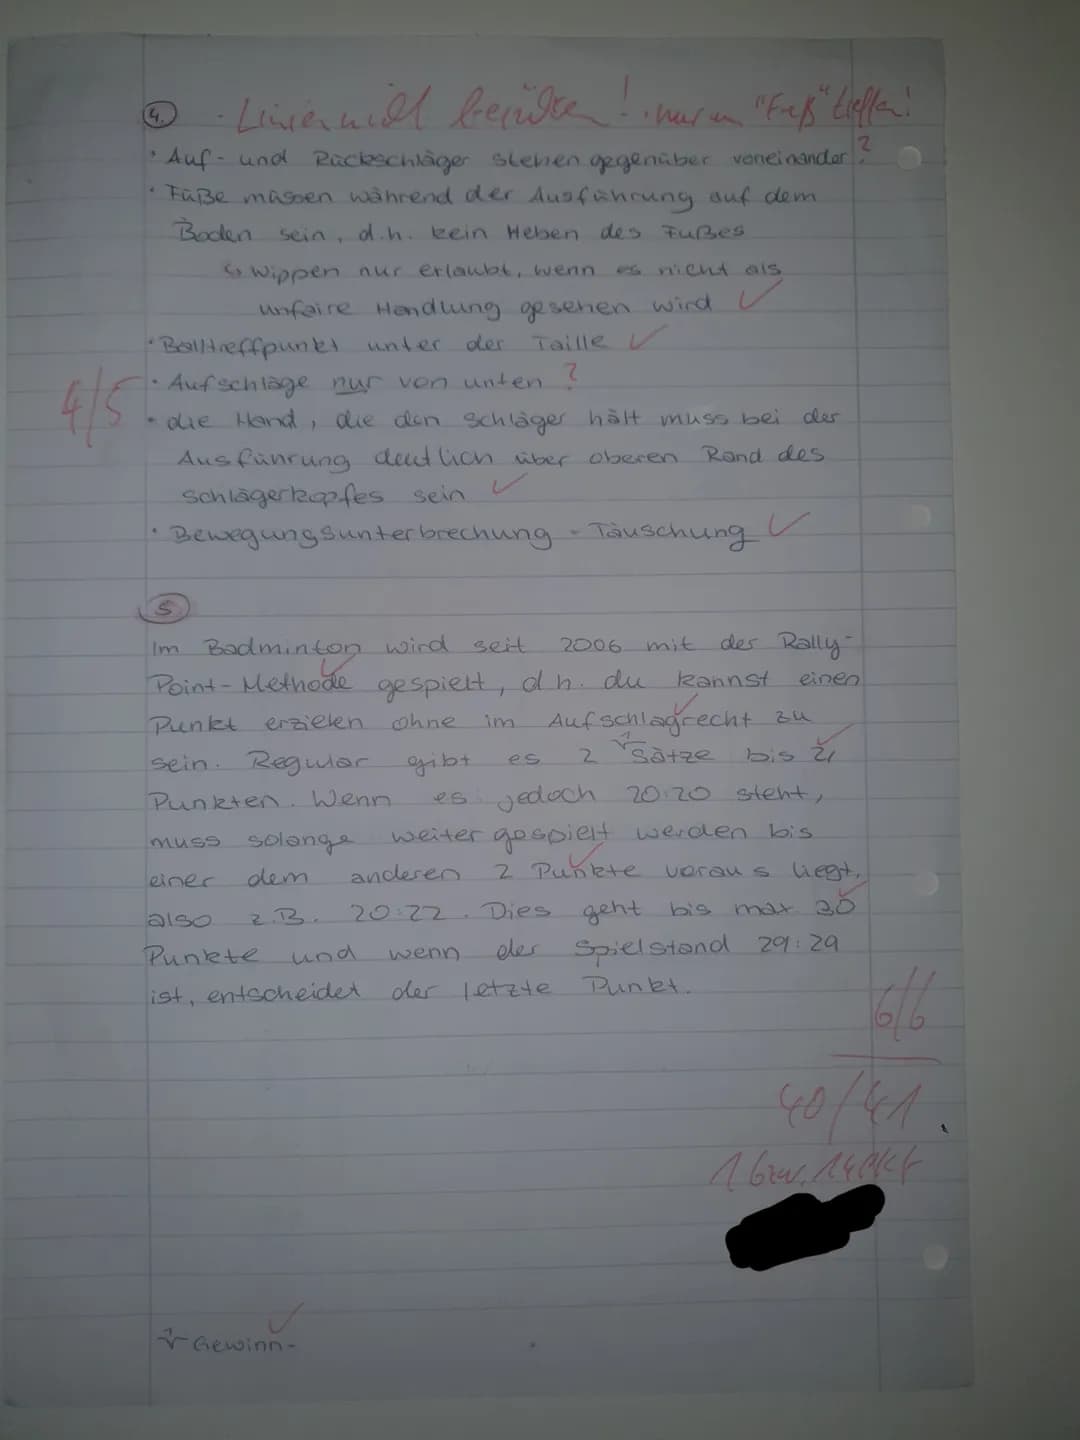 4. · Linien nicht berühren! · nur am "Fuß" treffen!
· Auf- und Rückschläger stehen gegenüber voneinander ?
· Füße müssen während der Ausführung auf dem
Boden sein, d.h. kein Heben des Fußes
↳ wippen nur erlaubt, wenn es nicht als
unfaire Handlung gesehen wird ✓
· Balltreffpunkt unter der Taille ✓
· Aufschläge nur von unten ?
4/5
· die Hand, die den Schläger hält muss bei der
Ausführung deutlich über oberen Rand des
Schlägerkopfes sein ✓
· Bewegungsunterbrechung - Täuschung ✓
5
Im Badminton wird seit 2006 mit der Rally-
Point-Methode gespielt, d.h. du kannst einen
Punkt erzielen ohne im Aufschlagrecht zu
sein. Regulär gibt es 2 Sätze bis 21
Punkten. Wenn es jedoch 20:20 steht,
muss solange weiter gespielt werden bis
einer dem anderen 2 Punkte voraus liegt,
also z.B. 20:22. Dies geht bis max 30
Punkte und wenn der Spielstand 29:29
ist, entscheidet der letzte Punkt.
6/6
40/41
1 bzw. 14 Pkt
Gewinn- ✓